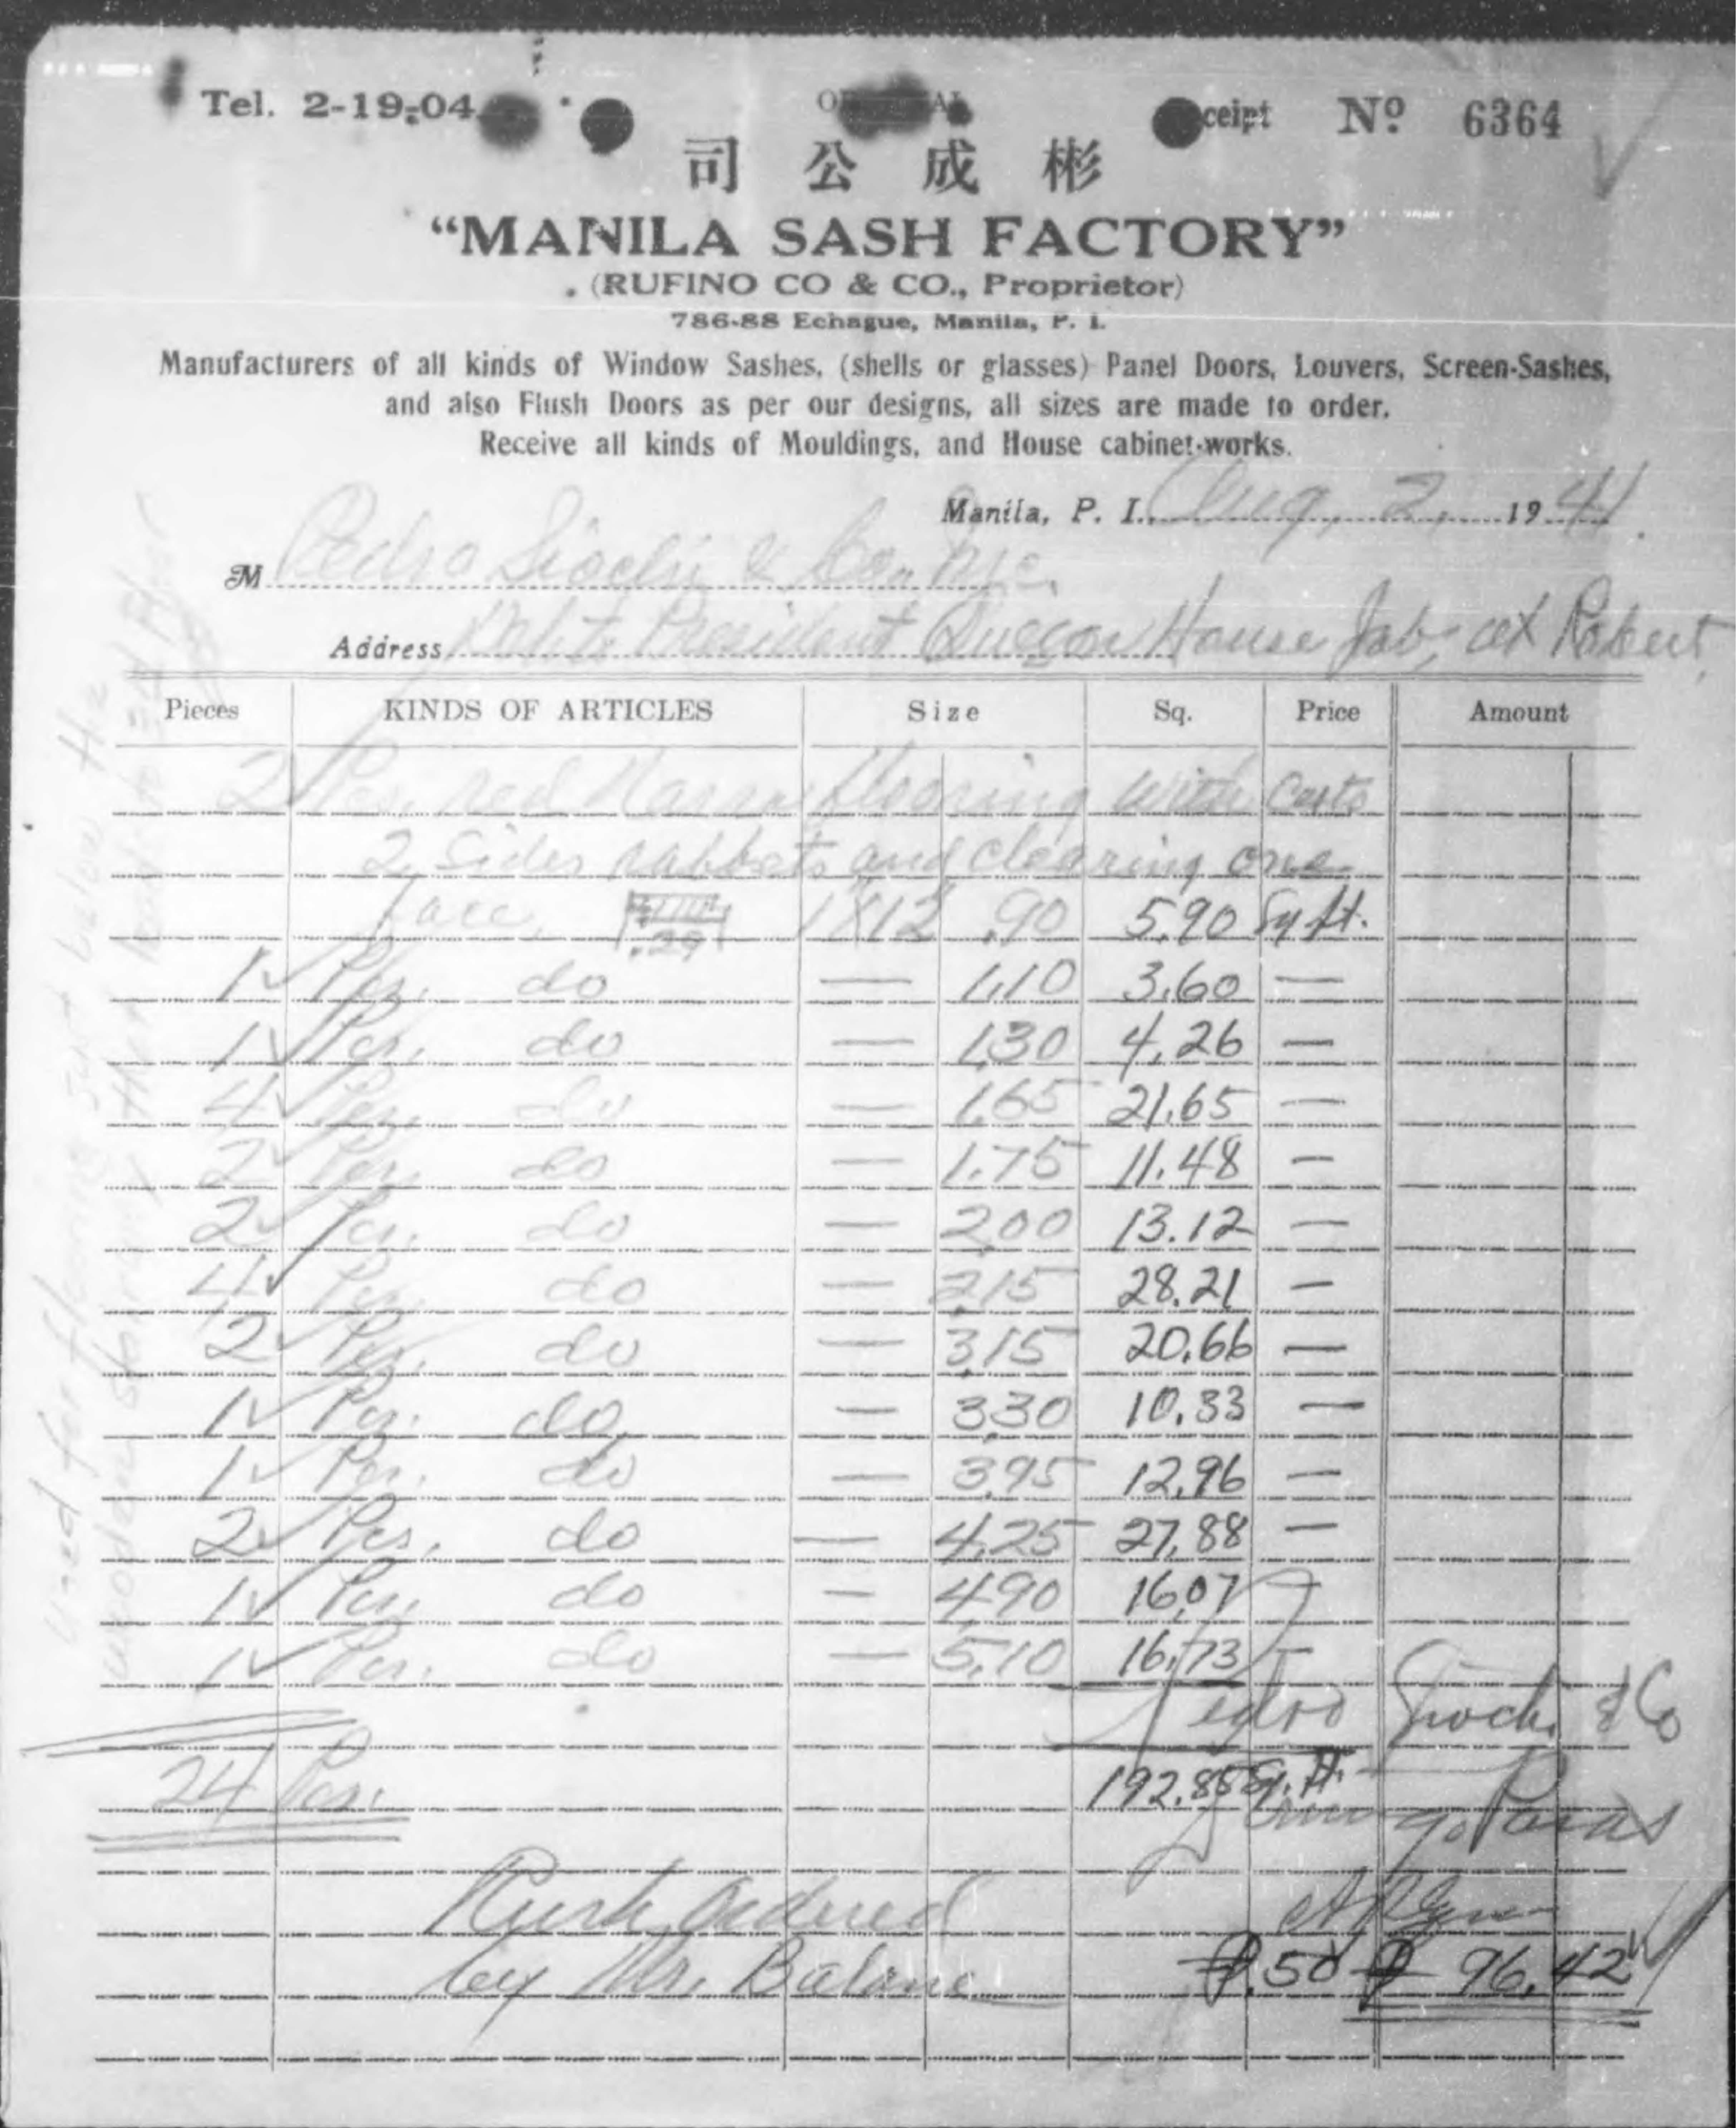 Tel. 2-19-04
ceipt Nº 6364
司公成彬
“MANILA SASH FACTORY”
(RUFINO CO & CO., Proprietor)
786-88 Echague, Manila, P. I.
Manufacturers of all kinds of Window Sashes, (shells or glasses) Panel Doors, Louvers, Screen-Sashes,
and also Flush Doors as per our designs, all sizes are made to order.
Receive all kinds of Mouldings, and House cabinet-works.
Manila, P. I., Aug. 2, 1941.
M Pedro Siochi & Co., Inc.
Address President Quezon House Job, at Robert
Pieces KINDS OF ARTICLES Size Sq. Price Amount
2 Pcs. red Narra flooring with cuts
2 sides rabbets and clearing one
face, .29 1X12 .90 5.90 Sq ft.
1 Pcs. do — 1.10 3.60 —
1 Pcs. do — 1.30 4.26 —
4 Pcs. do — 1.65 21.65 —
2 Pcs. do — 1.75 11.48 —
2 Pcs. do — 2.00 13.12 —
4 Pcs. do — 2.15 28.21 —
2 Pcs. do — 3.15 20.66 —
1 Pcs. do — 3.30 10.33 —
1 Pcs. do — 3.95 12.96 —
2 Pcs. do — 4.25 27.88 —
1 Pcs. do — 4.90 16.07 —
1 Pcs. do — 5.10 16.73 —
Pedro Siochi & Co
24 Pcs. 192.85 Sq. ft.
Paras
Rush ordered
by Mr. Balane ₱.50 ₱ 96.42